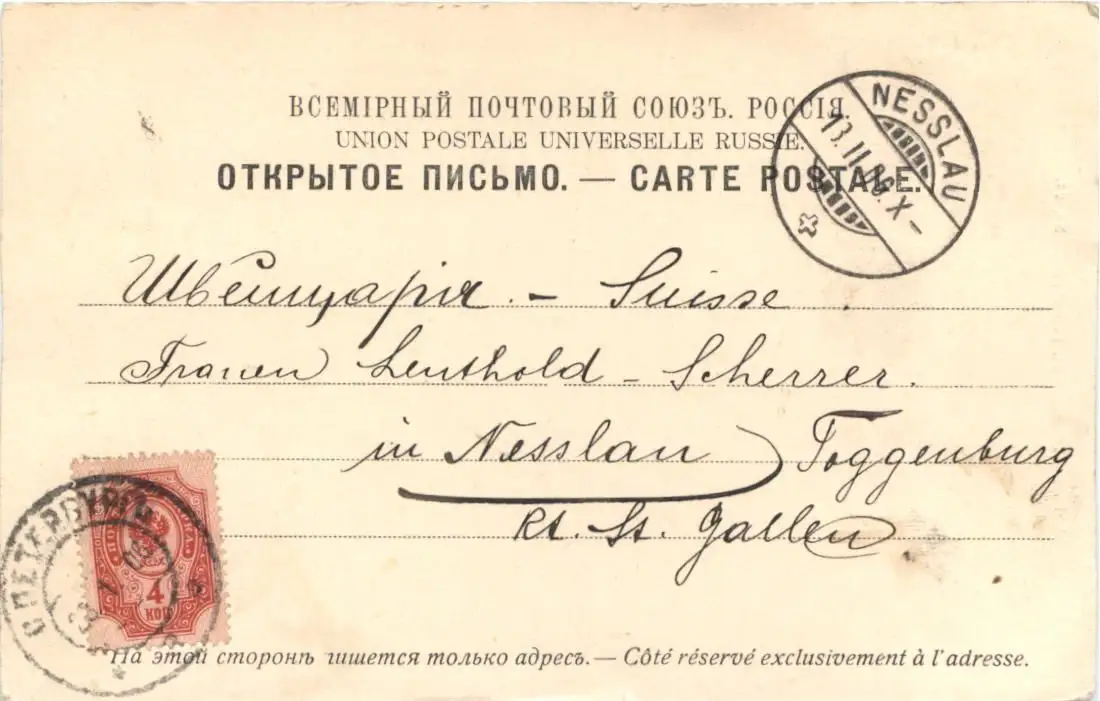 ВСЕМІРНЫЙ ПОЧТОВЫЙ СОЮЗЪ. РОССІЯ.
UNION POSTALE UNIVERSELLE RUSSIE.
ОТКРЫТОЕ ПИСЬМО. — CARTE POSTALE.
NESSLAU
13.II.06.X–
Швейцарія. – Suisse.
Frauen Leuthold – Scherrer.
in Nesslau Toggenburg
Kt. St. Gallen
С ПЕТЕРБУРГЪ
4
КОП
На этой сторонѣ пишется только адресъ. — Côté réservé exclusivement à l'adresse.